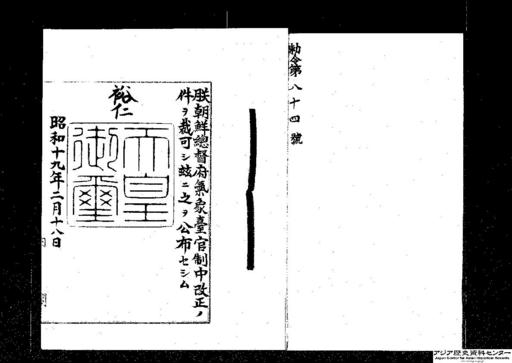 勅令第八十四號
朕朝鮮總督府氣象臺官制中改正ノ
件ヲ裁可シ玆ニ之ヲ公布セシム
裕仁
天皇
御璽
昭和十九年二月十八日
内閣
アジア歴史資料センター
Japan Center for Asian Historical Records